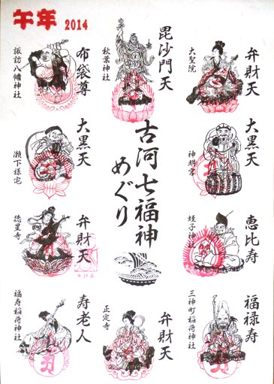 午年 2014
弁財天
大聖院
毘沙門天
秋葉神社
布袋尊
諏訪八幡神社
古河七福神
めぐり
大黒天
神明宮
大黒天
瀬下様宅
恵比寿
蛭子神社
弁財天
徳星寺
福禄寿
三神町稲荷神社
弁財天
正定寺
寿老人
福寿稲荷神社